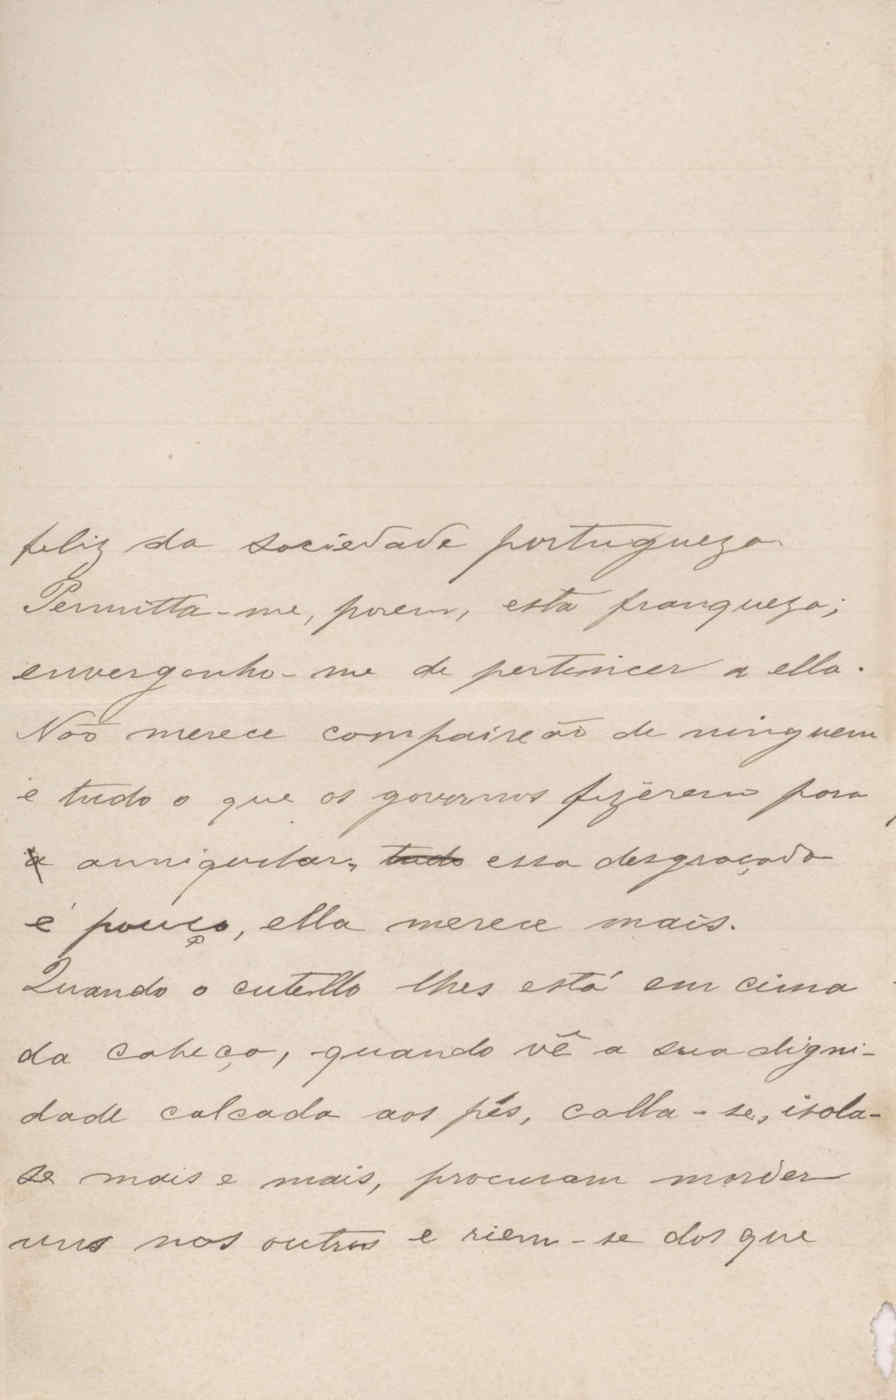 feliz da sociedade portugueza.
Permitta-me, porem, esta franqueza;
envergonho-me de pertencer a ella.
Não merece compaixão de ninguem
e tudo o que os governos fizerem para
a anniquilar, tudo essa desgraçada
é pouco, ella merece mais.
Quando o cutello lhes está em cima
da cabeça, quando vê a sua digni-
dade calcada aos pés, calla-se, isola-
se mais e mais, procuram morder
uns nos outros e riem-se dos que